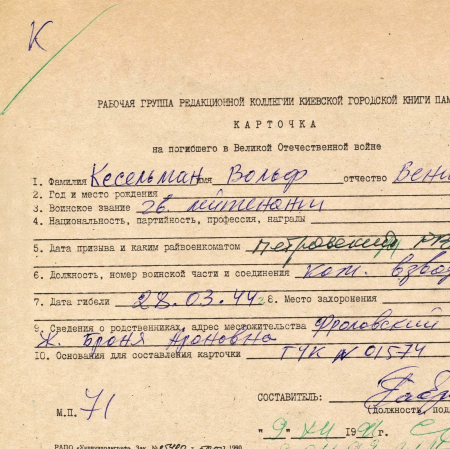 К
РАБОЧАЯ ГРУППА РЕДАКЦИОННОЙ КОЛЛЕГИИ КИЕВСКОЙ ГОРОДСКОЙ КНИГИ ПАМ
КАРТОЧКА
на погибшего в Великой Отечественной войне
1. Фамилия Кесельман имя Вольф отчество Вени
2. Год и место рождения
3. Воинское звание гв. лейтенант
4. Национальность, партийность, профессия, награды
5. Дата призыва и каким райвоенкоматом Петровский РВ
6. Должность, номер воинской части и соединения ком. взвод
7. Дата гибели 28.03.44г 8. Место захоронения
9. Сведения о родственниках, адрес местожительства Фроловский
ж. Броня Ароновна
10. Основания для составления карточки ГУК № 01574
СОСТАВИТЕЛЬ:
(должность, под
М.П. 71
"9" XII 1991г.
1990